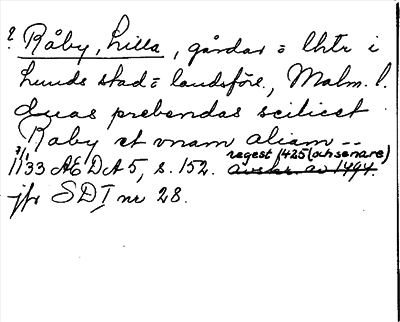 ? Råby, Lilla, gårdar = lhtr i
Lunds stad = landsförs., Malm. l.
duas prebendas scilicet
Raby et vnam aliam --
regest 1425 (och senare)
7/1 1133 AEDA 5, s. 152. avskr. av 1494.
jfr SD I nr 28.